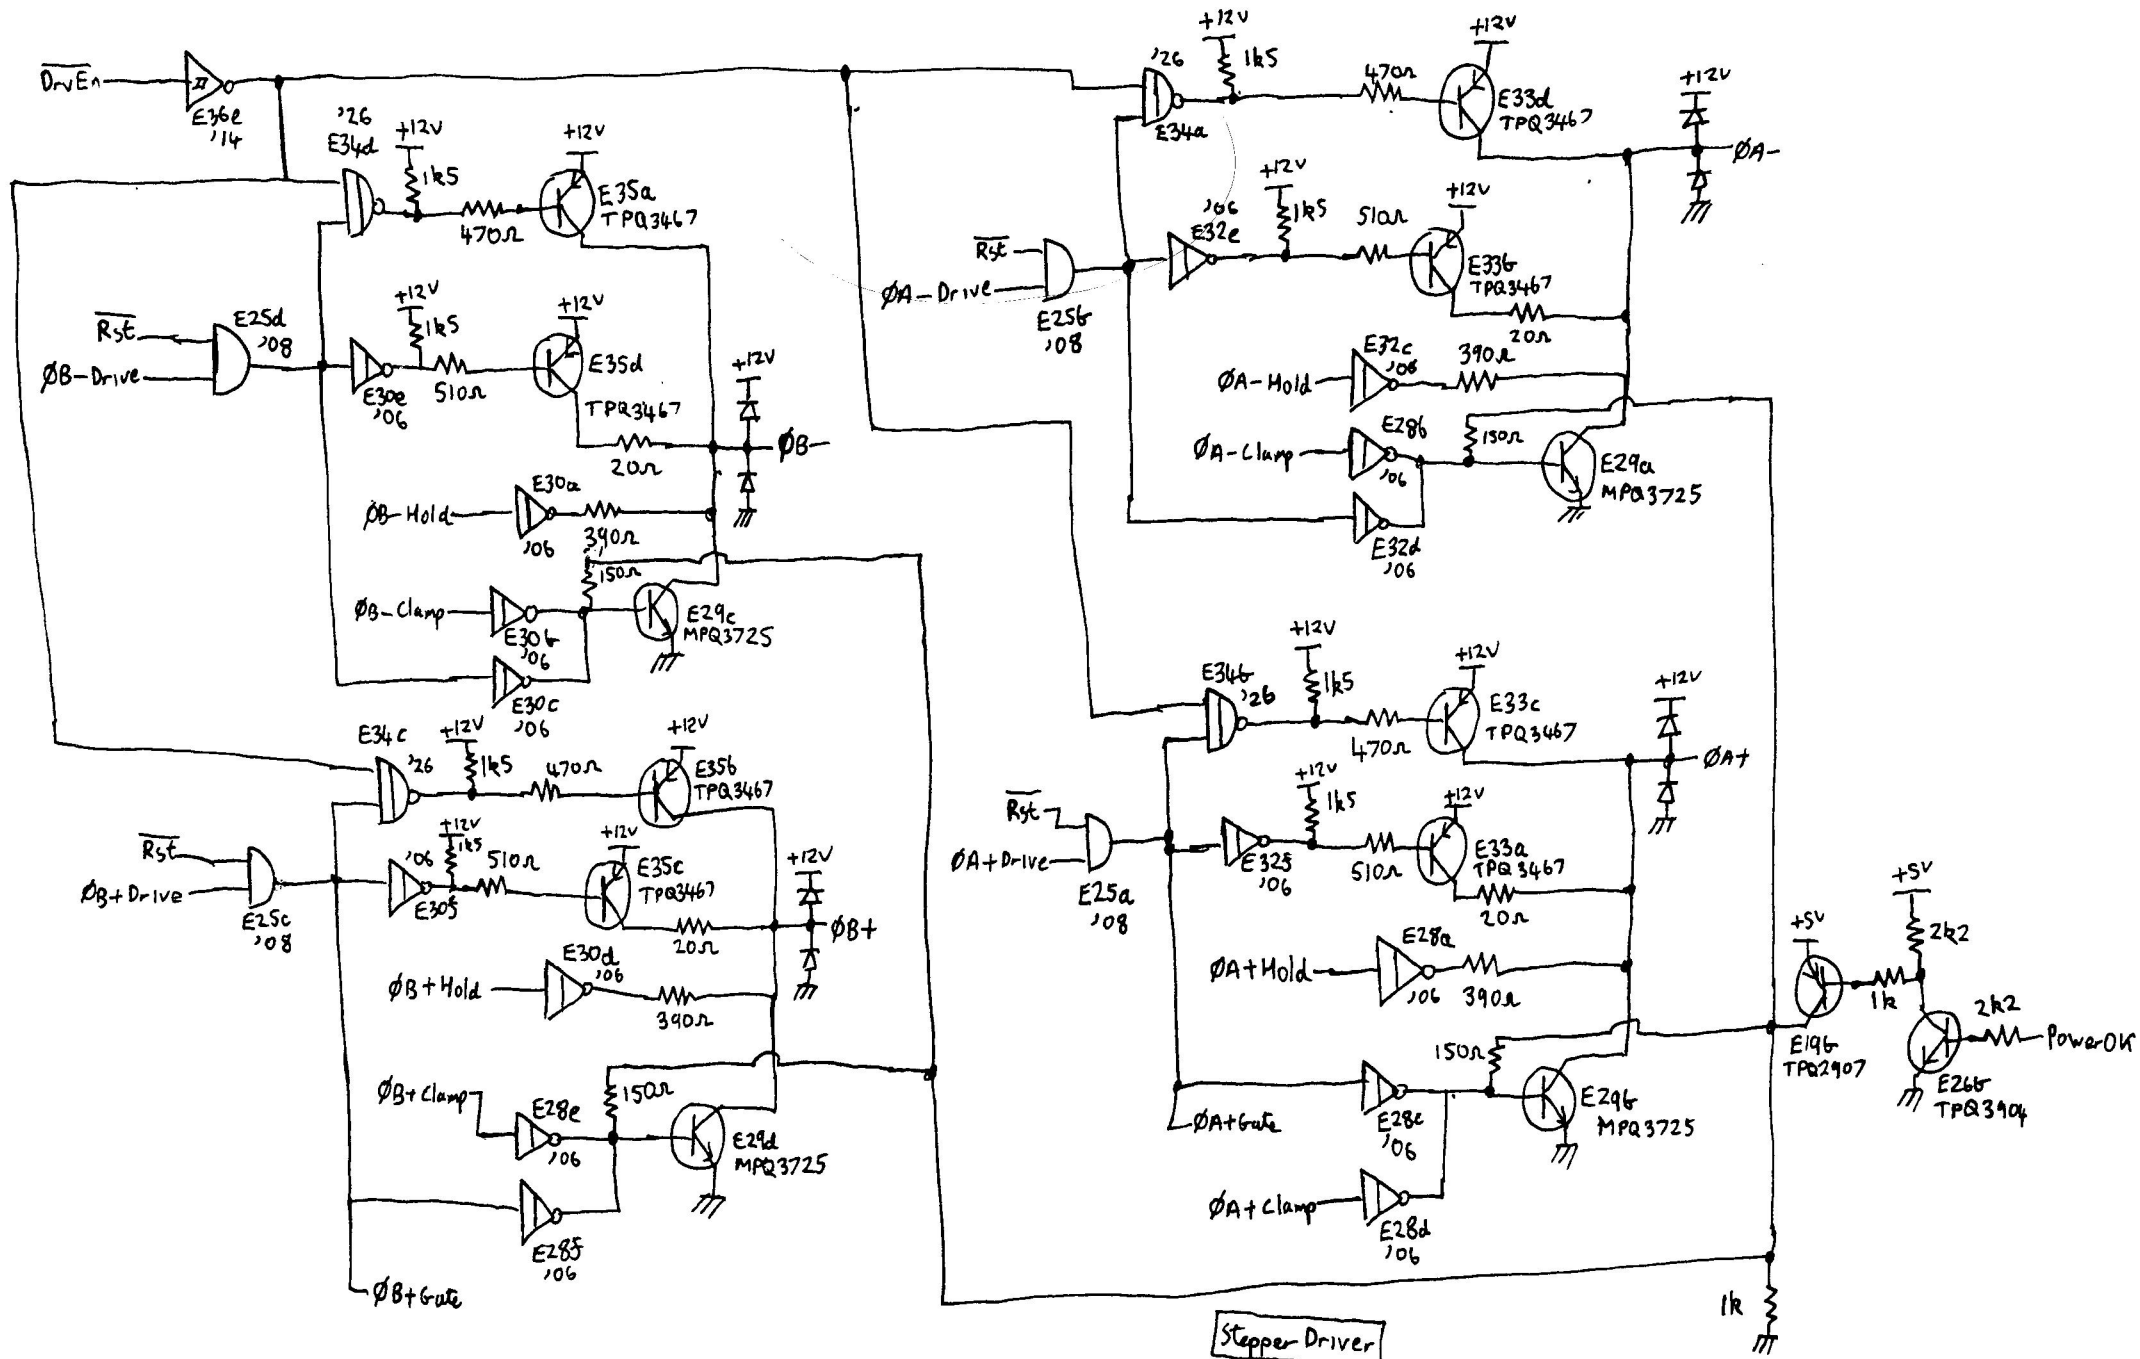 D̅r̅v̅E̅n̅
E36e
'14
'26
E34d
+12V
1k5
470Ω
+12V
E35a
TPQ3467
R̅s̅t̅
ØB-Drive
E25d
'08
+12V
1k5
E30e
'06
510Ω
+12V
E35d
TPQ3467
20Ω
+12V
ØB-
ØB-Hold
E30a
'06
390Ω
150Ω
ØB-Clamp
E30b
'06
E29c
MPQ3725
E30c
'06
E34c
'26
+12V
1k5
470Ω
+12V
E35b
TPQ3467
R̅s̅t̅
ØB+Drive
E25c
'08
+12V
1k5
'06
E30f
510Ω
+12V
E35c
TPQ3467
20Ω
+12V
ØB+
ØB+Hold
E30d
'06
390Ω
ØB+Clamp
E28e
'06
150Ω
E29d
MPQ3725
E28f
'06
ØB+Gate
+12V
'26
1k5
E34a
470Ω
+12V
E33d
TPQ3467
+12V
ØA-
R̅s̅t̅
ØA-Drive
E25b
'08
'06
E32e
+12V
1k5
510Ω
+12V
E33b
TPQ3467
20Ω
ØA-Hold
E32c
'06
390Ω
ØA-Clamp
E28b
'06
150Ω
E29a
MPQ3725
E32d
'06
E34b
'26
+12V
1k5
470Ω
+12V
E33c
TPQ3467
+12V
ØA+
R̅s̅t̅
ØA+Drive
E25a
'08
E32f
'06
+12V
1k5
510Ω
+12V
E33a
TPQ3467
20Ω
ØA+Hold
E28a
'06
390Ω
150Ω
E28c
'06
E29b
MPQ3725
ØA+Gate
ØA+Clamp
E28d
'06
+5V
E19b
TPQ2907
1k
+5V
2k2
2k2
PowerOK
E26b
TPQ3904
1k
Stepper Driver